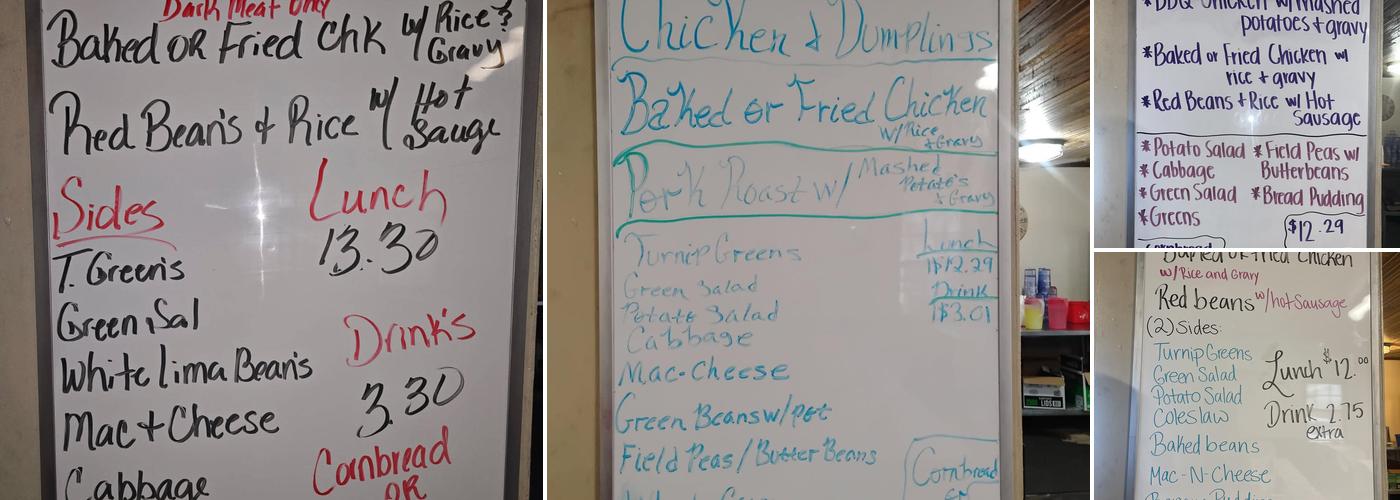 Dark Meat Only
Baked OR Fried Chk w/ Rice &
Gravy
Red Bean's & Rice w/ Hot
Sauge
Sides
Lunch
13.30
T. Green's
Green Sal
White lima Bean's
Mac + Cheese
Cabbage
Drink's
3.30
Cornbread
OR
Chicken & Dumplings
Baked or Fried Chicken
w/ Rice
+ Gravy
Pork Roast w/ Mashed
Potato's
& Gravy
Turnip Greens
Green Salad
Potato Salad
Cabbage
Mac-Cheese
Green Beans w/ pot
Field Peas / Butter Beans
Lunch
$12.29
Drink
$3.01
Cornbread
or
*BBQ Chicken w/ Mashed
potatoes + gravy
*Baked or Fried Chicken w/
rice + gravy
*Red Beans + Rice w/ Hot
Sausage
*Potato Salad
*Cabbage
*Green Salad
*Greens
*Field Peas w/
Butterbeans
*Bread Pudding
$12.29
Cornbread
Baked or Fried Chicken
w/ Rice and Gravy
Red beans w/ hot Sausage
(2) Sides:
Turnip Greens
Green Salad
Potato Salad
Coleslaw
Baked beans
Mac-N-Cheese
Lunch $12.00
Drink 2.75
extra